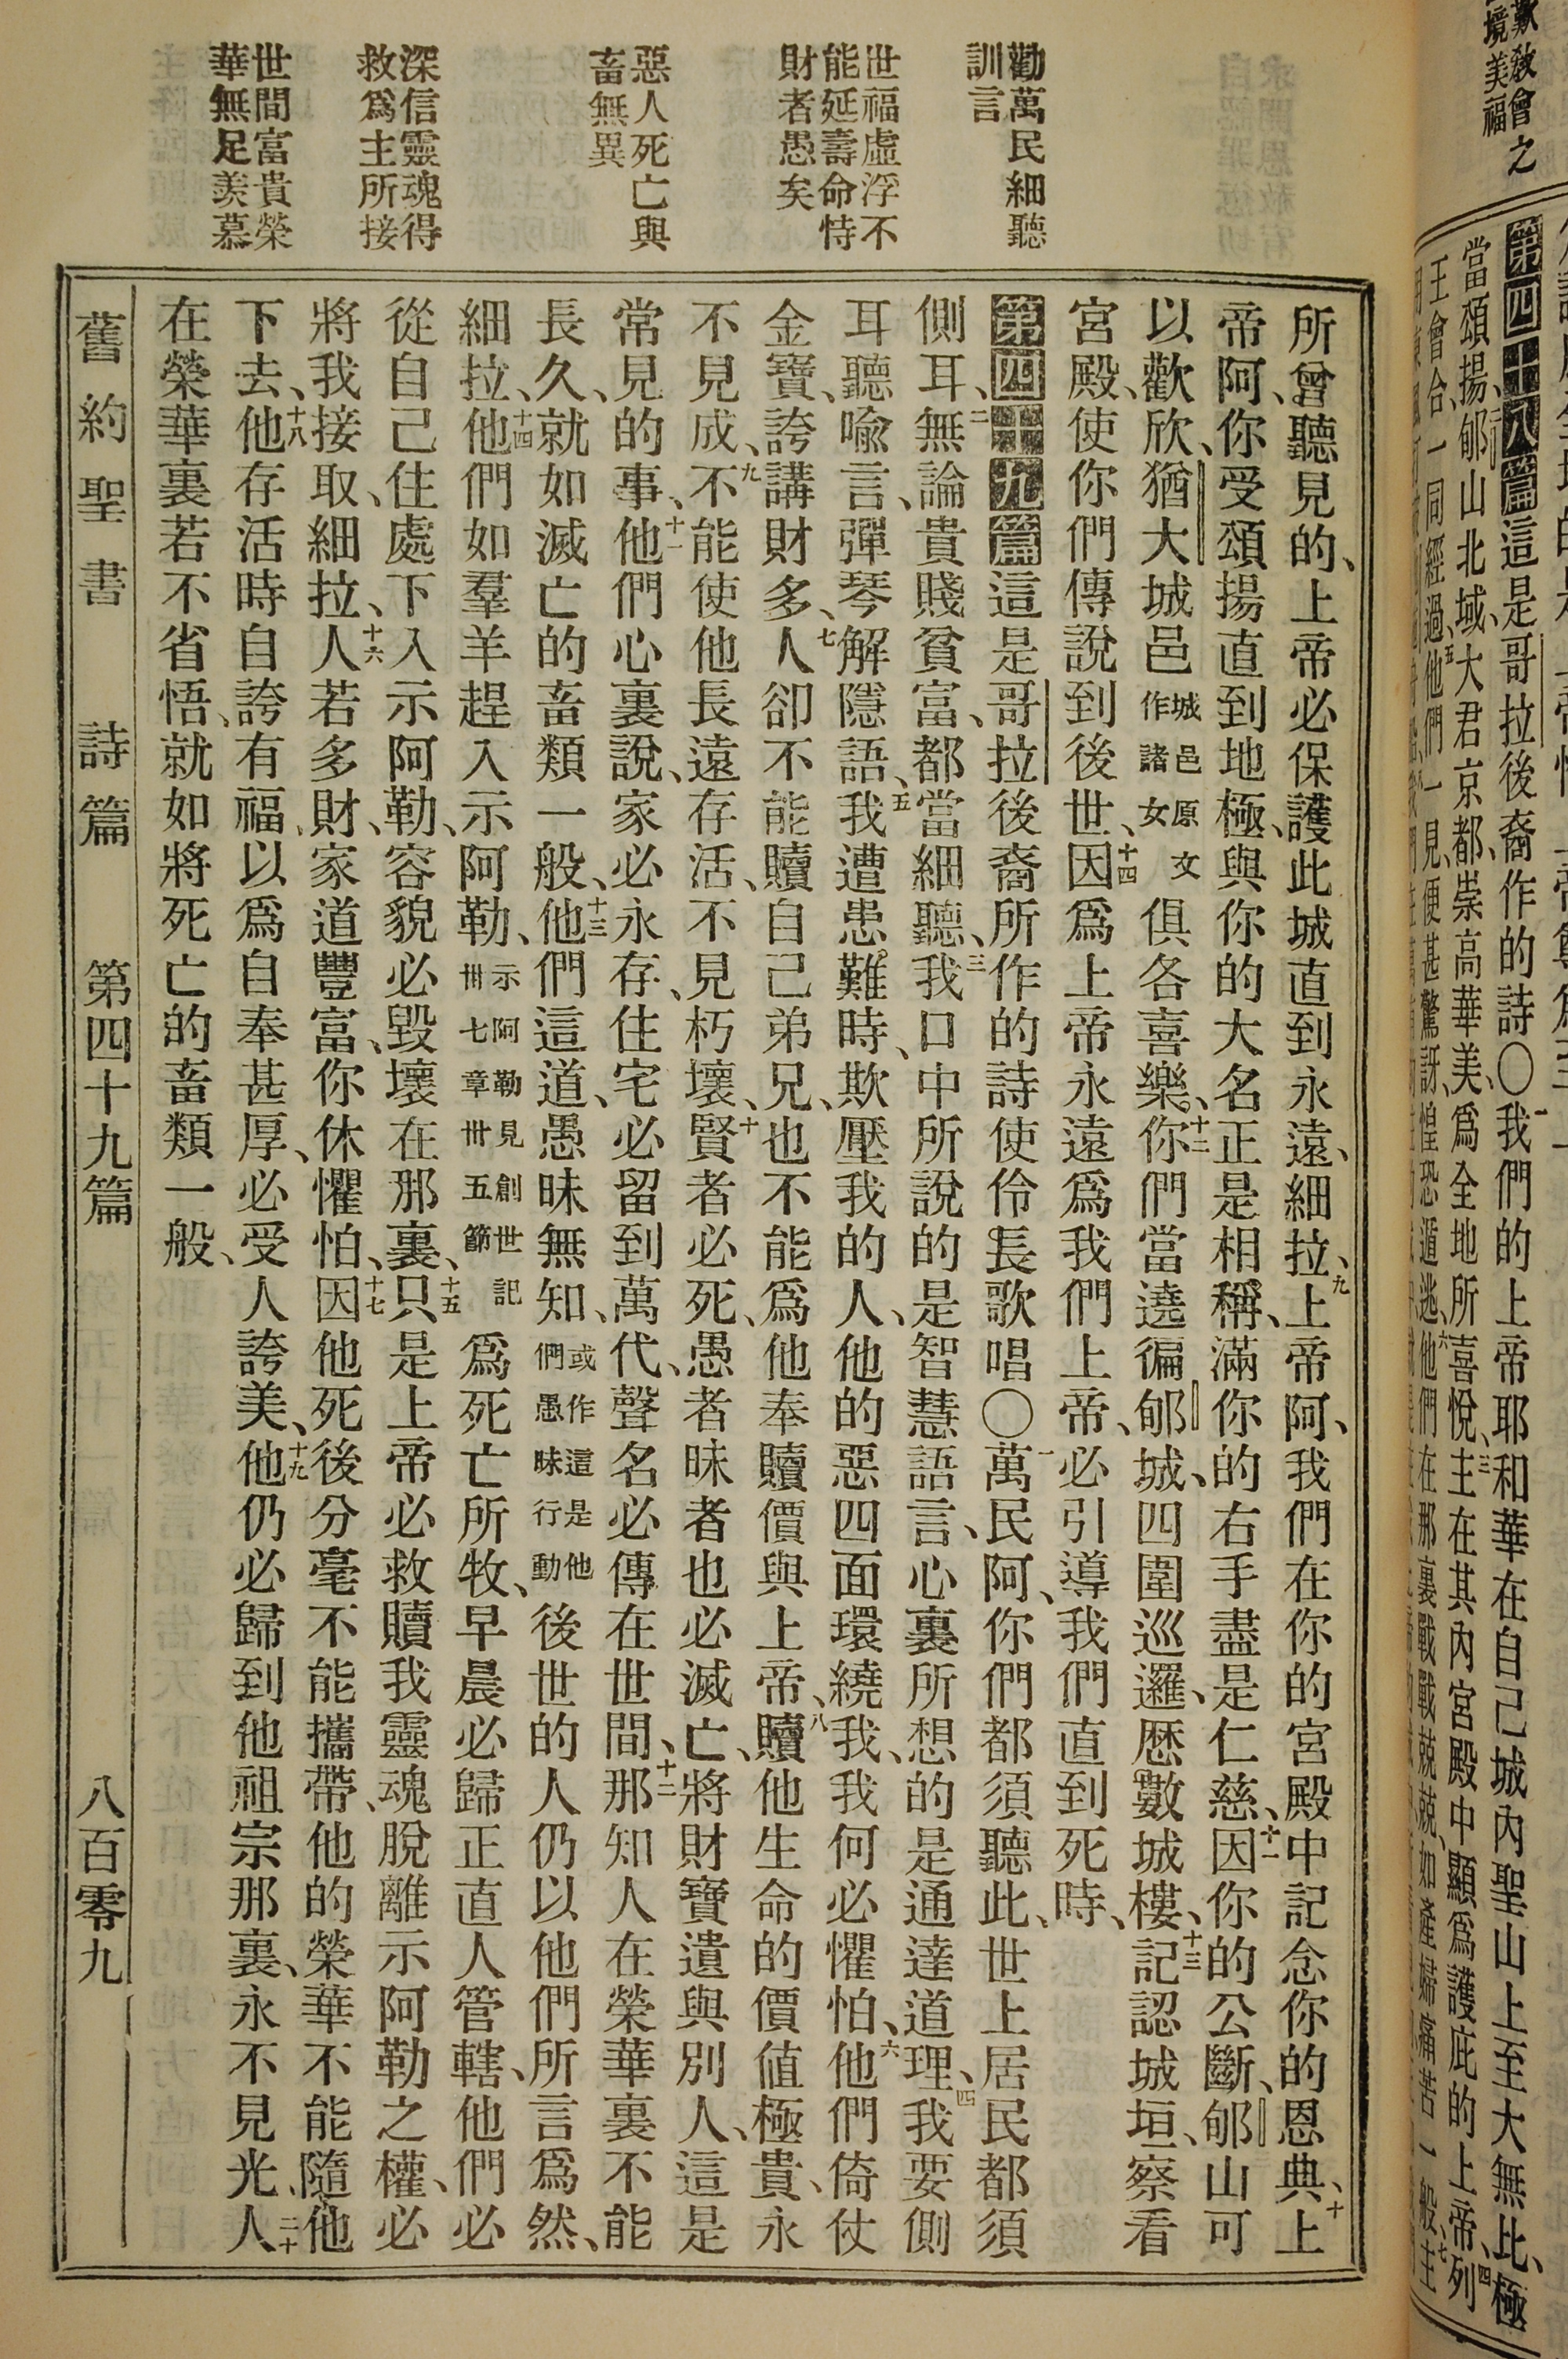 歎敎會之
境美福
第四十八篇這是哥拉後裔作的詩〇一我們的上帝耶和華在自己城內聖山上至大無比、極
當頌揚、二郇山北域、大君京都、崇高華美、爲全地所喜悅、三主在其內宮殿中顯爲護庇的上帝、四列
王會合、一同經過、五他們一見、便甚驚訝、惶恐遁逃、六他們在那裏戰戰兢兢、如產婦痛苦一般、七主
勸萬民細聽
訓言
世福虛浮不
能延壽命恃
財者愚矣
惡人死亡與
畜無異
深信靈魂得
救爲主所接
世間富貴榮
華無足羨慕
所曾聽見的、上帝必保護此城直到永遠、細拉、九上帝阿、我們在你的宮殿中記念你的恩典、十上
帝阿、你受頌揚直到地極、與你的大名正是相稱、滿你的右手盡是仁慈、十一因你的公斷、郇山可
以歡欣、猶大城邑城邑原文作諸女俱各喜樂、十二你們當遶徧郇城、四圍巡邏、歷數城樓、十三記認城垣、察看
宮殿、使你們傳說到後世、十四因爲上帝永遠爲我們上帝、必引導我們直到死時、
第四十九篇這是哥拉後裔所作的詩使伶長歌唱〇一萬民阿、你們都須聽此、世上居民都須
側耳、二無論貴賤貧富、都當細聽、三我口中所說的是智慧語言、心裏所想的是通達道理、四我要側
耳聽喩言、彈琴解隱語、五我遭患難時、欺壓我的人、他的惡四面環繞我、我何必懼怕、六他們倚仗
金寶、誇講財多、七人卻不能贖自己弟兄、也不能爲他奉贖價與上帝、八贖他生命的價値極貴、永
不見成、九不能使他長遠存活、不見朽壞、十賢者必死、愚者昧者也必滅亡、將財寶遺與別人、這是
常見的事、十一他們心裏說、家必永存、住宅必留到萬代、聲名必傳在世間、十二那知人在榮華裏不能
長久、就如滅亡的畜類一般、十三他們這道、愚昧無知、或作這是他們愚昧行動後世的人仍以他們所言爲然、
細拉、十四他們如羣羊趕入示阿勒、示阿勒見創世記卅七章卅五節爲死亡所牧、早晨必歸正直人管轄、他們必
從自己住處下入示阿勒、容貌必毀壞在那裏、十五只是上帝必救贖我靈魂脫離示阿勒之權、必
將我接取、細拉、十六人若多財、家道豐富、你休懼怕、十七因他死後分毫不能攜帶、他的榮華不能隨他
下去、十八他存活時自誇有福、以爲自奉甚厚、必受人誇美、十九他仍必歸到他祖宗那裏、永不見光、二十人
在榮華裏若不省悟、就如將死亡的畜類一般、
舊約聖書　詩篇　第四十九篇　八百零九